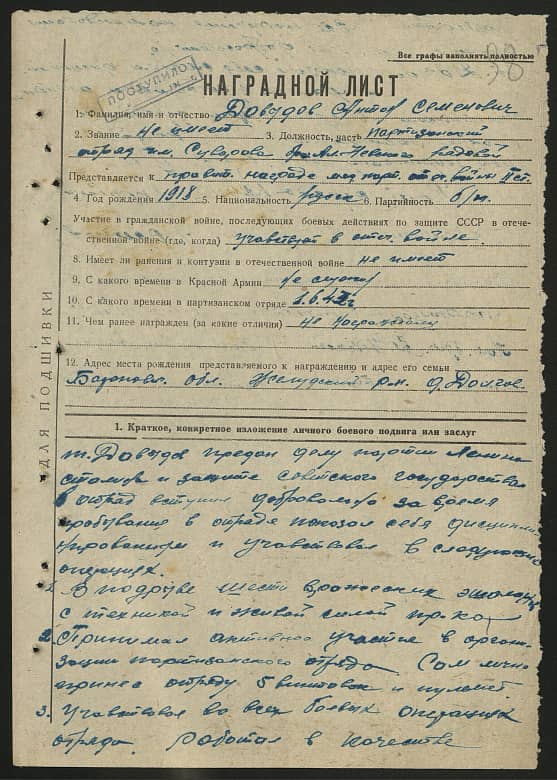 Все графы заполнять полностью
38
НАГРАДНОЙ ЛИСТ
1. Фамилия, имя и отчество Довудов Антон Семенович
2. Звание не имеет 3. Должность, часть партизанский
отряд им. Суворова рядовой
Представляется к правит. награде мед. парт. отеч. войны II ст.
4. Год рождения 1918 5. Национальность 6. Партийность б/п.
Участие в гражданской войне, последующих боевых действиях по защите СССР в отече-
ственной войне (где, когда) участвует в отеч. войне.
8. Имеет ли ранения и контузии в отечественной войне не имеет
9. С какого времени в Красной Армии не служил
10. С какого времени в партизанском отряде
11. Чем ранее награжден (за какие отличия) не награждался
12. Адрес места рождения представляемого к награждению и адрес его семьи
обл. Желудский р-н. д.
ДЛЯ ПОДШИВКИ
1. Краткое, конкретное изложение личного боевого подвига или заслуг
т. Довудов предан делу партии Ленина
Сталина и защите советского государства
В отряд вступил добровольно за время
пребывания в отряде показал себя дисципли-
нированным и участвовал в следующих
операциях.
1. В подрыве шести вражеских эшелонов
с техникой и живой силой пр-ка
2. Принимал активное участие в органи-
зации партизанского отряда. Сам лично
принес отряду 5 винтовок и пулемет.
3. Участвовал во всех боевых операциях
отряда. Работал в качестве